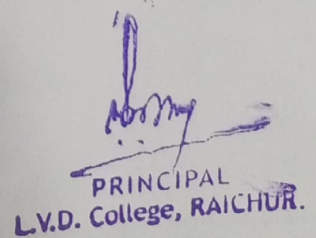 PRINCIPAL
L.V.D. College, RAICHUR.